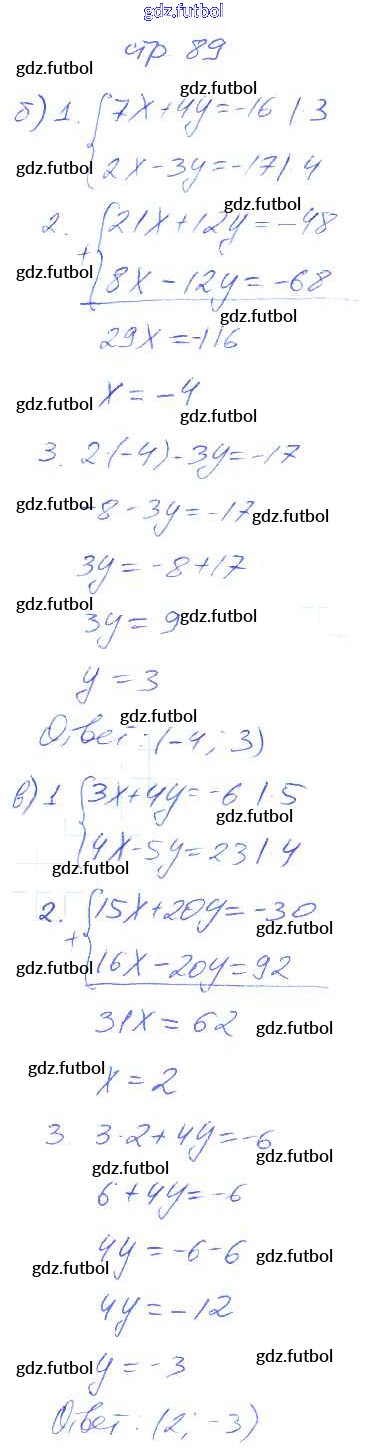 gdz.futbol
стр. 89
gdz.futbol
gdz.futbol
б) 1. { 7x + 4y = -16 | · 3
gdz.futbol
2x - 3y = -17 | · 4
gdz.futbol
2. + { 21x + 12y = -48
gdz.futbol
8x - 12y = -68
gdz.futbol
29x = -116
gdz.futbol
x = -4
gdz.futbol
3. 2·(-4) - 3y = -17
gdz.futbol
-8 - 3y = -17
gdz.futbol
3y = -8 + 17
gdz.futbol
3y = 9
gdz.futbol
y = 3
gdz.futbol
Ответ: (-4; 3)
в) 1 { 3x + 4y = -6 | · 5
gdz.futbol
4x - 5y = 23 | · 4
gdz.futbol
2. + { 15x + 20y = -30
gdz.futbol
16x - 20y = 92
gdz.futbol
gdz.futbol
31x = 62
gdz.futbol
gdz.futbol
x = 2
3. 3·2 + 4y = -6
gdz.futbol
gdz.futbol
6 + 4y = -6
4y = -6 - 6
gdz.futbol
gdz.futbol
4y = -12
gdz.futbol
y = -3
gdz.futbol
Ответ: (2; -3)